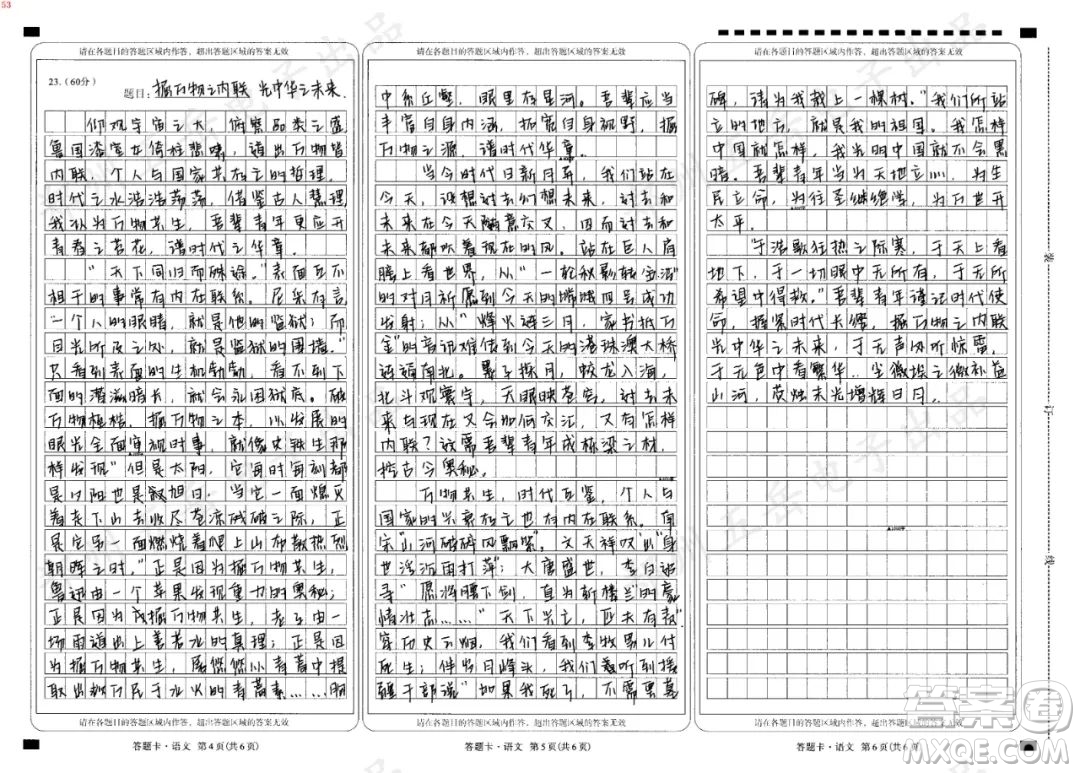 53
请在各题目的答题区域内作答，超出答题区域的答案无效
23.（60分）
题目：掘万物之内联 光中华之未来
仰观宇宙之大，俯察品类之盛
鲁国漆室女倚柱悲啸，道出万物皆
内联，个人与国家共在之的哲理，
时代之水浩浩荡荡，借鉴古人慧理
我认为万物共生，吾辈青年更应开
青春之苔花，谱时代之华章。
“天下同归而殊途。”表面互不
相干的事常有内在联系。尼采有言
“一个人的眼睛，就是他的监狱；而
目光所及之处，就是监狱的围墙。”
只看到表面的生机勃勃，看不到下
面的潜滋暗长，就会永困狱底。破
万物桎梏，掘万物之本，以发展的
眼光全面审视时事，就像史铁生那
样发现“但是太阳，它每时每刻都
是夕阳也是叙旭日。当它一面熄灭
着走下山去收尽苍凉残破之际，正
是它另一面燃烧着爬上山布散热烈
朝晖之时。”正是因为掘万物共生，
鲁迅由一个苹果发现重力的奥秘；
正是因为掘万物共生，老子由一
场雨道出上善若水的真理；正是因
为掘万物共生，屠悠悠从青蒿中提
取出救万民于水火的青蒿素……胸
请在各题目的答题区域内作答，超出答题区域的答案无效
答题卡·语文 第4页(共6页)
请在各题目的答题区域内作答，超出答题区域的答案无效
中有丘壑，眼里存星河。吾辈应当
丰富自身内涵，拓宽自身视野，掘
万物之源，谱时代华章。
当今时代日新月异，我们站在
今天，设想过去们想未来，过去和
未来在今天酾意交叉，因而过去和
未来都吹着现在的风。站在巨人肩
膀上看世界，从“一轮秋影转金波”
的对月祈愿到今天的嫦娥四号成功
发射；从“烽火连三月，家书抵万
金”的音讯难传到今天的港珠澳大桥
连通南北。墨子探月，蛟龙入海，
北斗观寰宇，天眼映苍穹，过去未
来与现在又会如何交汇，又有怎样
内联？这需吾辈青年成栋梁之材，
挖古今奥秘。
万物共生，时代互鉴，个人与
国家的兴衰存亡也存内在联系。南
宋“山河破碎风飘絮”，文天祥叹“身
世浮沉雨打萍”；大唐盛世，李白诚
寻“愿将腰下剑，直为斩楼兰”的豪
情壮志……“天下兴亡，匹夫有责”
穿历史之烟，我们看到李牧男儿付
死生；伴出月峰头，我们
“如果我死了，不需要墓
请在各题目的答题区域内作答，超出答题区域的答案无效
答题卡·语文 第5页(共6页)
请在各题目的答题区域内作答，超出答题区域的答案无效
碑，请为我栽上一棵树。”我们所站
立的地方，就是我的祖国。我怎样
中国就怎样，我光明中国就不会黑
暗。吾辈青年当为天地立心，为生
民立命，为往圣继绝学，为万世开
太平。
“于浩歌狂热之际寒，于天上看
地下，于一切眼中无所有，于无所
希望中得救。”吾辈青年谨记时代使
命，握紧时代长缨，掘万物之内联
光中华之未来，于无声处听惊雷，
于无色中看繁华，尘微垠之微补益
山河，荧烛末光增辉日月。
请在各题目的答题区域内作答，超出答题区域的答案无效
答题卡·语文 第6页(共6页)
装
订
线
答案圈
MXQE.COM